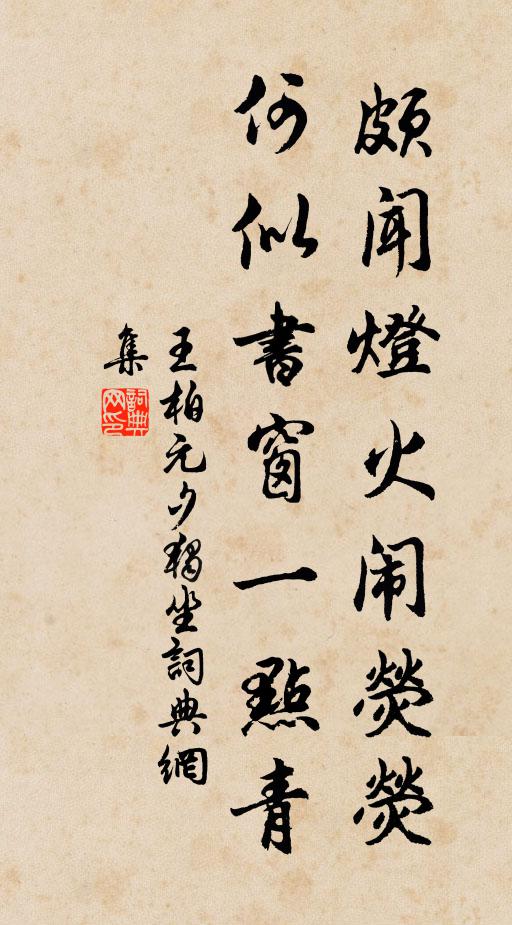 頗聞燈火闹熒熒
何似書窗一點青
王柏元夕獨坐詞典網
集
詞典
网印